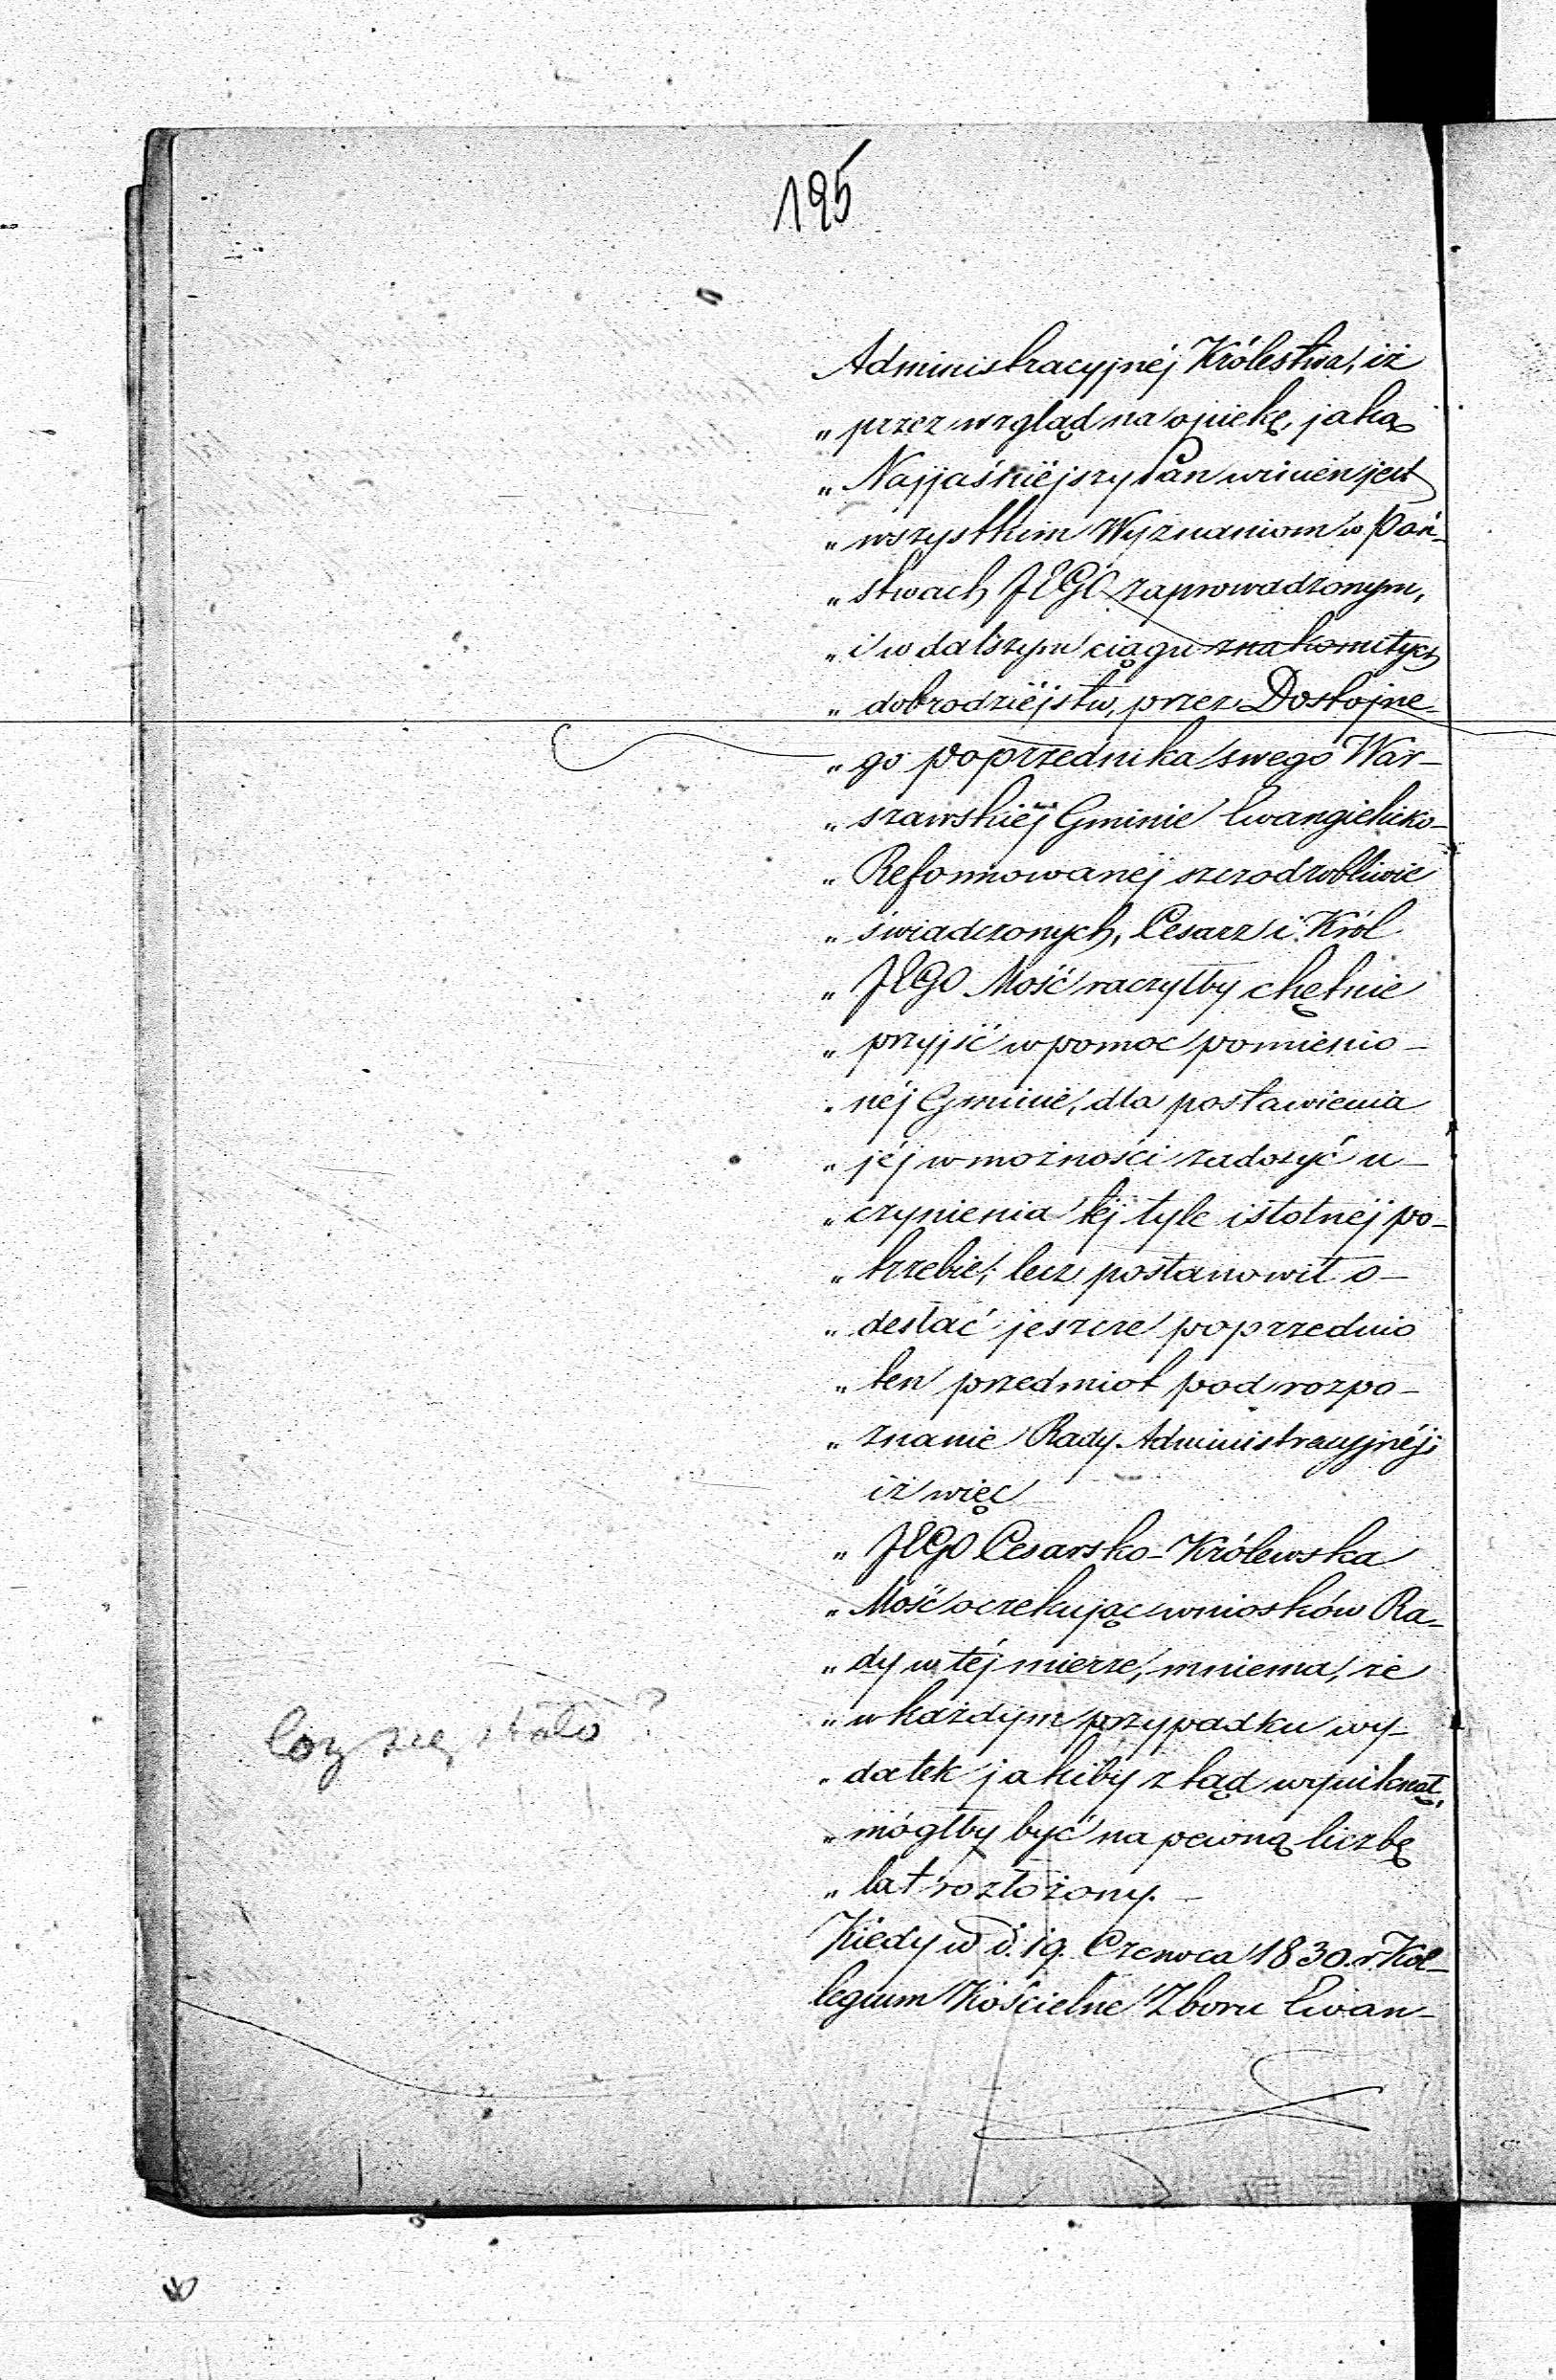 195
Administracyjnéj Królestwa, iż
„ przez wzgląd na opiekę, jaką
„ Najjaśniéjszy Pan winien jest
„ wszystkim Wyznaniom w Pań-
„ stwach JEGO zaprowadzonym,
„ i w dalszym ciągu znakomitych
„ dobrodziéjstw, przez Dostojne-
„ go poprzednika swego War-
„ szawskiéj Gminie Ewangielicko-
„ Reformowanéj szczodrobliwie
„ świadczonych, Cesarz i Król
„ JEGO Mość raczyłby chętnie
„ przyjść w pomoc pomienio-
„ néj Gminie, dla postawienia
„ jéj w możności zadosyć u-
„ czynienia téj tyle istotnéj po-
„ trzebie; lecz postanowił o-
„ desłać jeszcze poprzednio
„ ten przedmiot pod rozpo-
„ znanie Rady Administracyjnéj;
iż więc
„ JEGO Cesarsko-Królewska
„ Mość oczekując wniosków Ra-
„ dy w téj mierze, mniema, że
„ w każdym przypadku wy-
„ datek jakiby ztąd wyniknął,
„ mógłby być na pewną liczbę
„ lat rozłożony. -
Kiedy w d. 19. Czerwca 1830. r. Kol-
legium Kościelne Zboru Ewan-
Czy się stało?